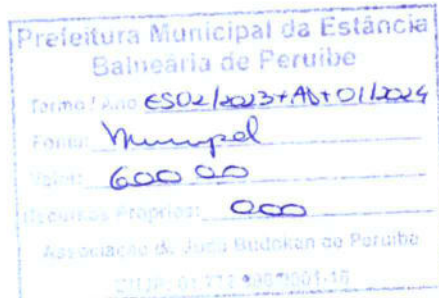 Prefeitura Municipal da Estância
Balneária de Peruibe
Termo / Ano ES02/2023+AD+01/2024
Fonte: Municipal
Valor: 600 00
Recursos Próprios: 000
Associação de Judô Budokan de Peruibe
CNPJ: